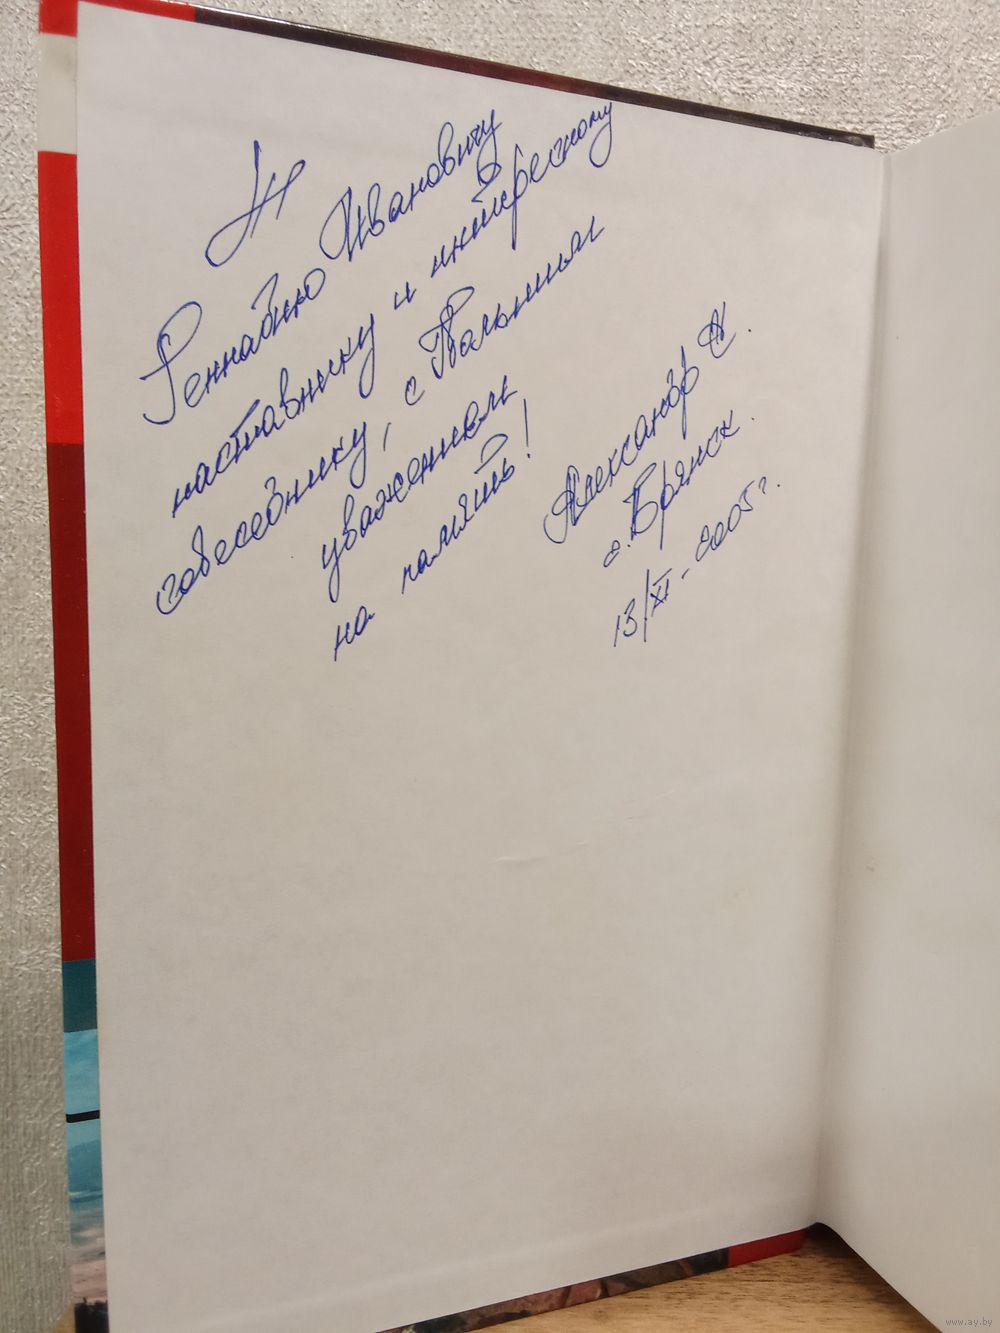 Геннадию Ивановичу
наставнику и интересному
собеседнику, с Большим
уважением
на память!
Александр К.
г. Брянск.
13/XI-2005г.
www.ay.by